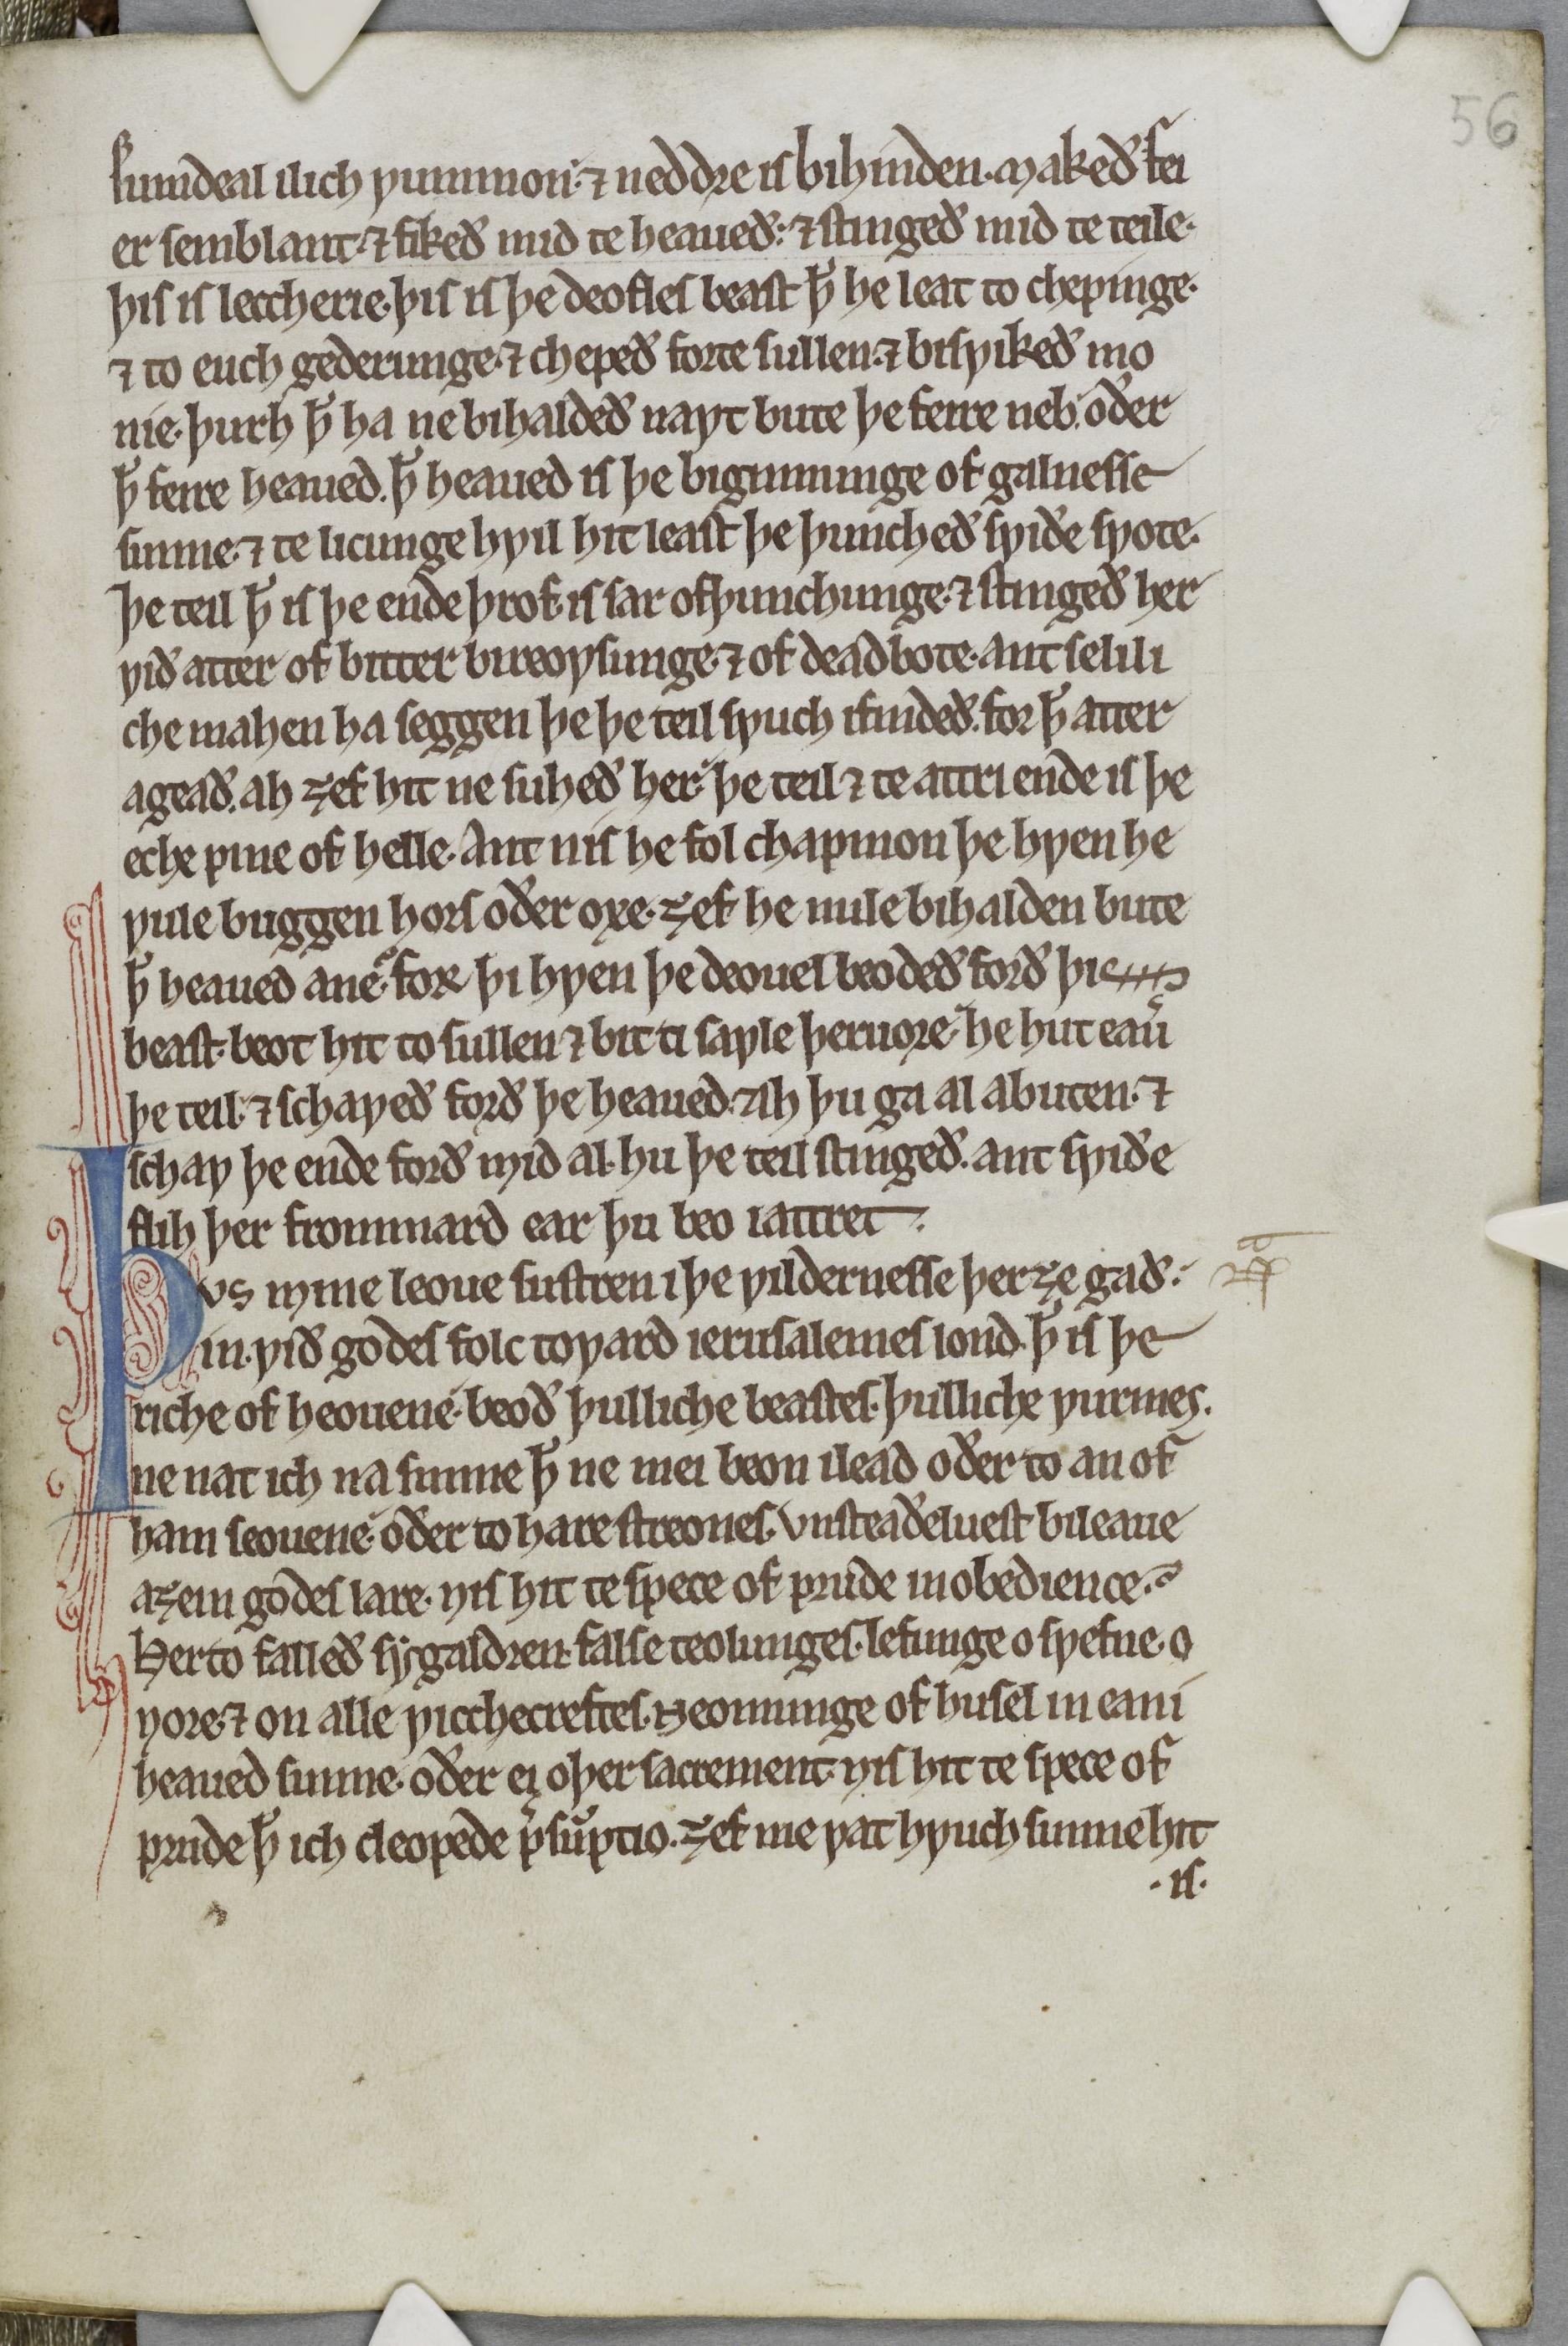 56
sumdeal ilich ƿummon· ⁊ neddre is bihinden. Makeð fei
er semblant· ⁊ fikeð mid te heaueð: ⁊ stingeð mid te teile·
þis is leccherie· þis is þe deofles beast ꝥ he leat to chepinge·
⁊ to euch gederunge· ⁊ chepeð forte sullen· ⁊ bisƿikeð mo
nie· þurh ꝥ ha ne bihaldeð naƿt bute þe feire neb. oðer
ꝥ feire heaued. ꝥ heaued is þe biginnunge of galnesse
sunne· ⁊ te licunge hƿil hit least þe þuncheð sƿiðe sƿote·
þe teil ꝥ is þe ende þrof· is sar ofþunchunge· ⁊ stingeð her
ƿið atter of bitter bireoƿsunge· ⁊ of deadbote· ant selili
che mahen ha seggen þe þe teil sƿuch ifindeð. for ꝥ atter
ageað. ah ȝef hit ne suheð her· þe teil ⁊ te attri ende is þe
eche pine of helle· Ant nis he fol chapmon þe hƿen he
ƿule buggen hors oðer oxe· ȝef he nule bihalden bute
ꝥ heaued ane· for þi hƿen þe deouel beodeð forð þis
beast· beot hit to sullen ⁊ bit ti saƿle þeruore· he hut eau̾
þe teil· ⁊ schaƿeð forð þe heaued· Ah þu ga al abuten· ⁊
schaƿ þe ende forð mid al· hu þe teil stingeð. ant sƿiðe
flih þer frommard ear þu beo iattret·
Þvs mine leoue sustren i þe ƿildernesse þer ȝe gað·
in· ƿið godes folc toƿard ierusalemes lond. ꝥ is þe
riche of heouene· beoð þulliche beastes· þulliche ƿurmes.
ne nat ich na sunne ꝥ ne mei beon ilead oðer to an of
ham seouene· oðer to hare streones. vnsteaðeluest bileaue
aȝein godes lare· nis hit te spece of prude inobedience·
Herto falleð sygaldren· false teolunges· lefunge o sƿefne· o
nore· ⁊ on alle ƿicchecreftes. Neomunge of husel in eani
heaued sunne· oðer ei oþer sacrement· nis hit te spece of
prude ꝥ ich cleopede p̾sūptio. ȝef me ƿat hƿuch sunne hit
· is·